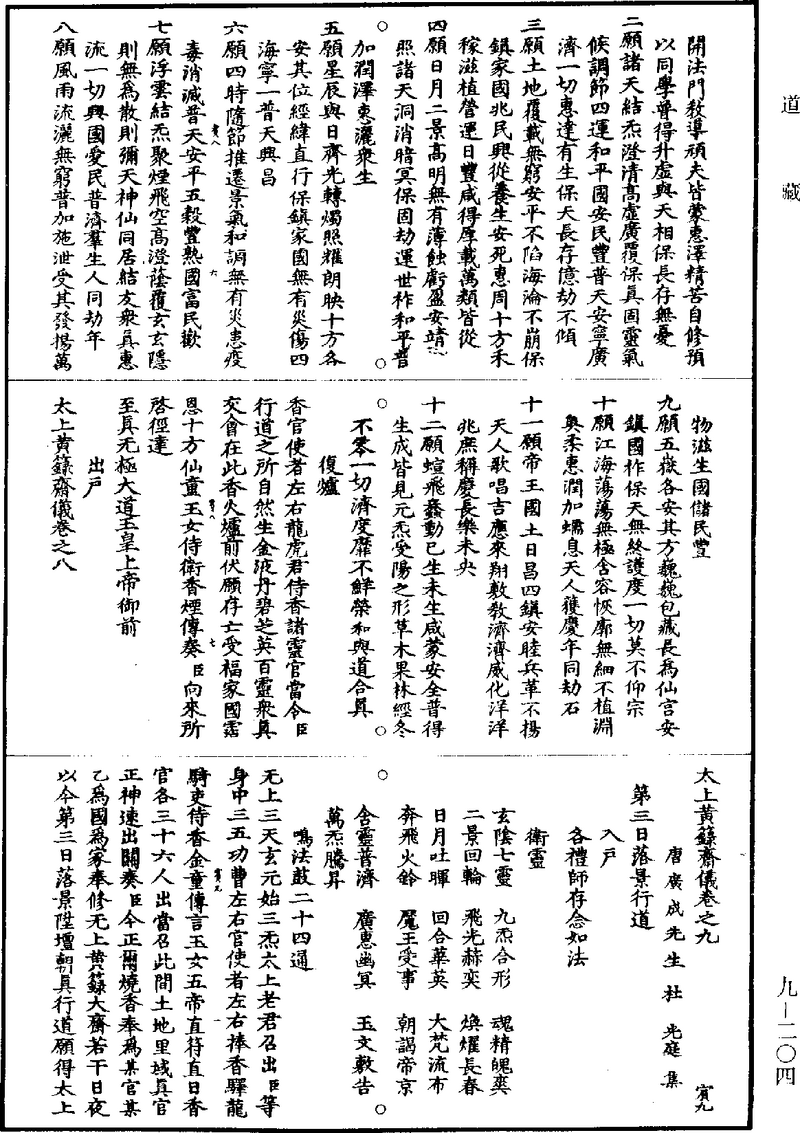 道藏
開法門教導頑夫皆蒙惠澤精苦自修預
以同學普得升虛與天相保長存無憂
二願諸天結炁澄清高虛廣覆保真固靈氣
候調節四運和平國安民豐普天安寧廣
濟一切惠達有生保天長存億劫不傾
三願土地覆載無窮安平不陷海淪不崩保
鎮家國兆民興從養生安死惠周十方禾
稼滋植營運日豐咸得厚載萬類皆從
四願日月二景高明無有薄蝕虧盈安靖
照諸天洞消暗冥保固劫運世祚和平普
加潤澤惠灑衆生
五願星辰與日齊光轉燭照耀朗映十方各
安其位經緯直行保鎮家國無有災傷四
海寧一普天興昌
六願四時隨節推遷景氣和調無有災患疫
毒消滅普天安平五穀豐熟國富民歡
七願浮雲結炁聚煙飛空高澄蔭覆玄玄隱
則無為散則彌天神仙同居結友衆真惠
流一切興國愛民普濟羣生人同劫年
八願風雨流灑無窮普加施泄受其發揚萬
物滋生國儲民豐
九願五嶽各安其方巍巍包藏長為仙宮安
鎮國祚保天無終護度一切莫不仰宗
十願江海蕩蕩無極含容恢廓無細不植淵
奧柔惠潤加蠕息天人獲慶年同劫石
十一願帝王國土日昌四鎮安睦兵革不揚
天人歌唱吉應來翔敷教濟濟威化洋洋
兆庶稱慶長樂未央
十二願蝖飛蠢動已生未生咸蒙安全普得
生成皆見元炁受陽之形草木果林經冬
不零一切濟度靡不鮮榮和與道合真
復爐
香官使者左右龍虎君侍香諸靈官當令臣
行道之所自然生金液丹碧芝英百靈衆真
交會在此香火爐前伏願存亡受福家國霑
恩十方仙童玉女侍衛香煙傳奏臣向來所
啓徑達
至真无極大道玉皇上帝御前
出戶
太上黃籙齋儀卷之八
太上黃籙齋儀卷之九
賓九
唐廣成先生杜光庭集
第三日落景行道
入戶
各禮師存念如法
衛靈
玄陰七靈 九炁合形 魂精魄奕
二景回輪 飛光赫奕 煥耀長春
日月吐暉 回合華英 大梵流布
奔飛火鈴 魔王受事 朝謁帝京
含靈普濟 廣惠幽冥 玉文敷告
萬炁騰昇
鳴法鼓二十四通
无上三天玄元始三炁太上老君召出臣等
身中三五功曹左右官使者左右捧香驛龍
騎吏侍香金童傳言玉女五帝直符直日香
官各三十六人出當召此間土地里域真官
正神速出關奏臣今正爾燒香奉為某官某
乙為國為家奉修无上黃籙大齋若干日夜
以今第三日落景陞壇朝真行道願得太上
九—二〇四